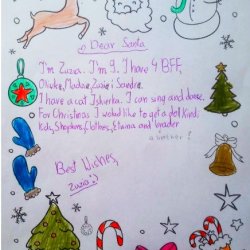 Dear Santa
I'm Zuzia. I'm 9. I have 4 BFF,
Oliwka, Madzia, Zuzia i Sandra.
I have a cat Iskierka. I can sing and dance.
For Christmas I would like to get a doll Kindi
Kids, Shopkins, Clothes, and
a
Best Wishes,
Zuzia :)